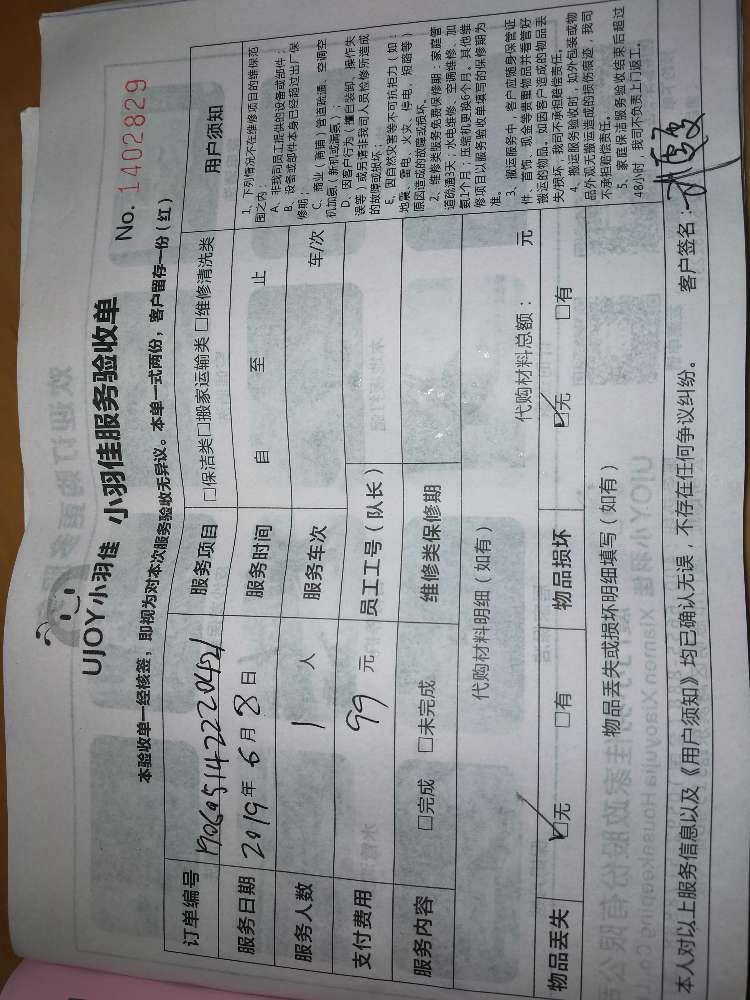 UJOY小羽佳 小羽佳服务验收单
No. 1402829
本验收单一经核签，即视为对本次服务验收无异议。本单一式两份，客户留存一份（红）
订单编号
服务项目 □保洁类□搬家运输类 □维修清洗类
用户须知
服务日期 2019年 6月 8日
服务时间 自 至 止
服务人数 1 人
服务车次 车/次
支付费用 99 元
员工工号（队长）
服务内容 □完成 □未完成
维修类保修期
代购材料明细（如有）
代购材料总额： 元
物品丢失 ☑无 □有
物品损坏 ☑无 □有
物品丢失或损坏明细填写（如有）
1、下列情况不在维修项目的维保范
围之内：
A、非我司员工提供的设备或部件；
B、设备或部件本身已经超过出厂保
修期；
C、商业（商铺）管道疏通、空调空
机加氨（新机或漏氨）；
D、因客户行为（擅自装卸、操作失
误等）或另请非我司人员检修所造成
的故障或损坏；
E、因自然灾害等不可抗拒力（如：
地震、雷电、火灾、停电、短路等）
原因造成的故障或损坏。
2、维修类服务免费保修期：家庭管
道疏通3天；水电维修、空调维修、加
氨1个月；压缩机更换6个月。其他维
修项目以服务验收单填写的保修期为
准。
3、搬运服务中，客户应随身保管证
件、首饰、现金等贵重物品并看管好
搬运的物品，如因客户造成的物品丢
失/损坏，我司不承担赔偿责任。
4、搬运服务验收时，如外包装或物
品外观无搬运造成的损伤痕迹，我司
不承担赔偿责任。
5、家庭保洁服务验收结束后超过
48小时，我司不负责上门返工。
本人对以上服务信息以及《用户须知》均已确认无误，不存在任何争议纠纷。 客户签名：